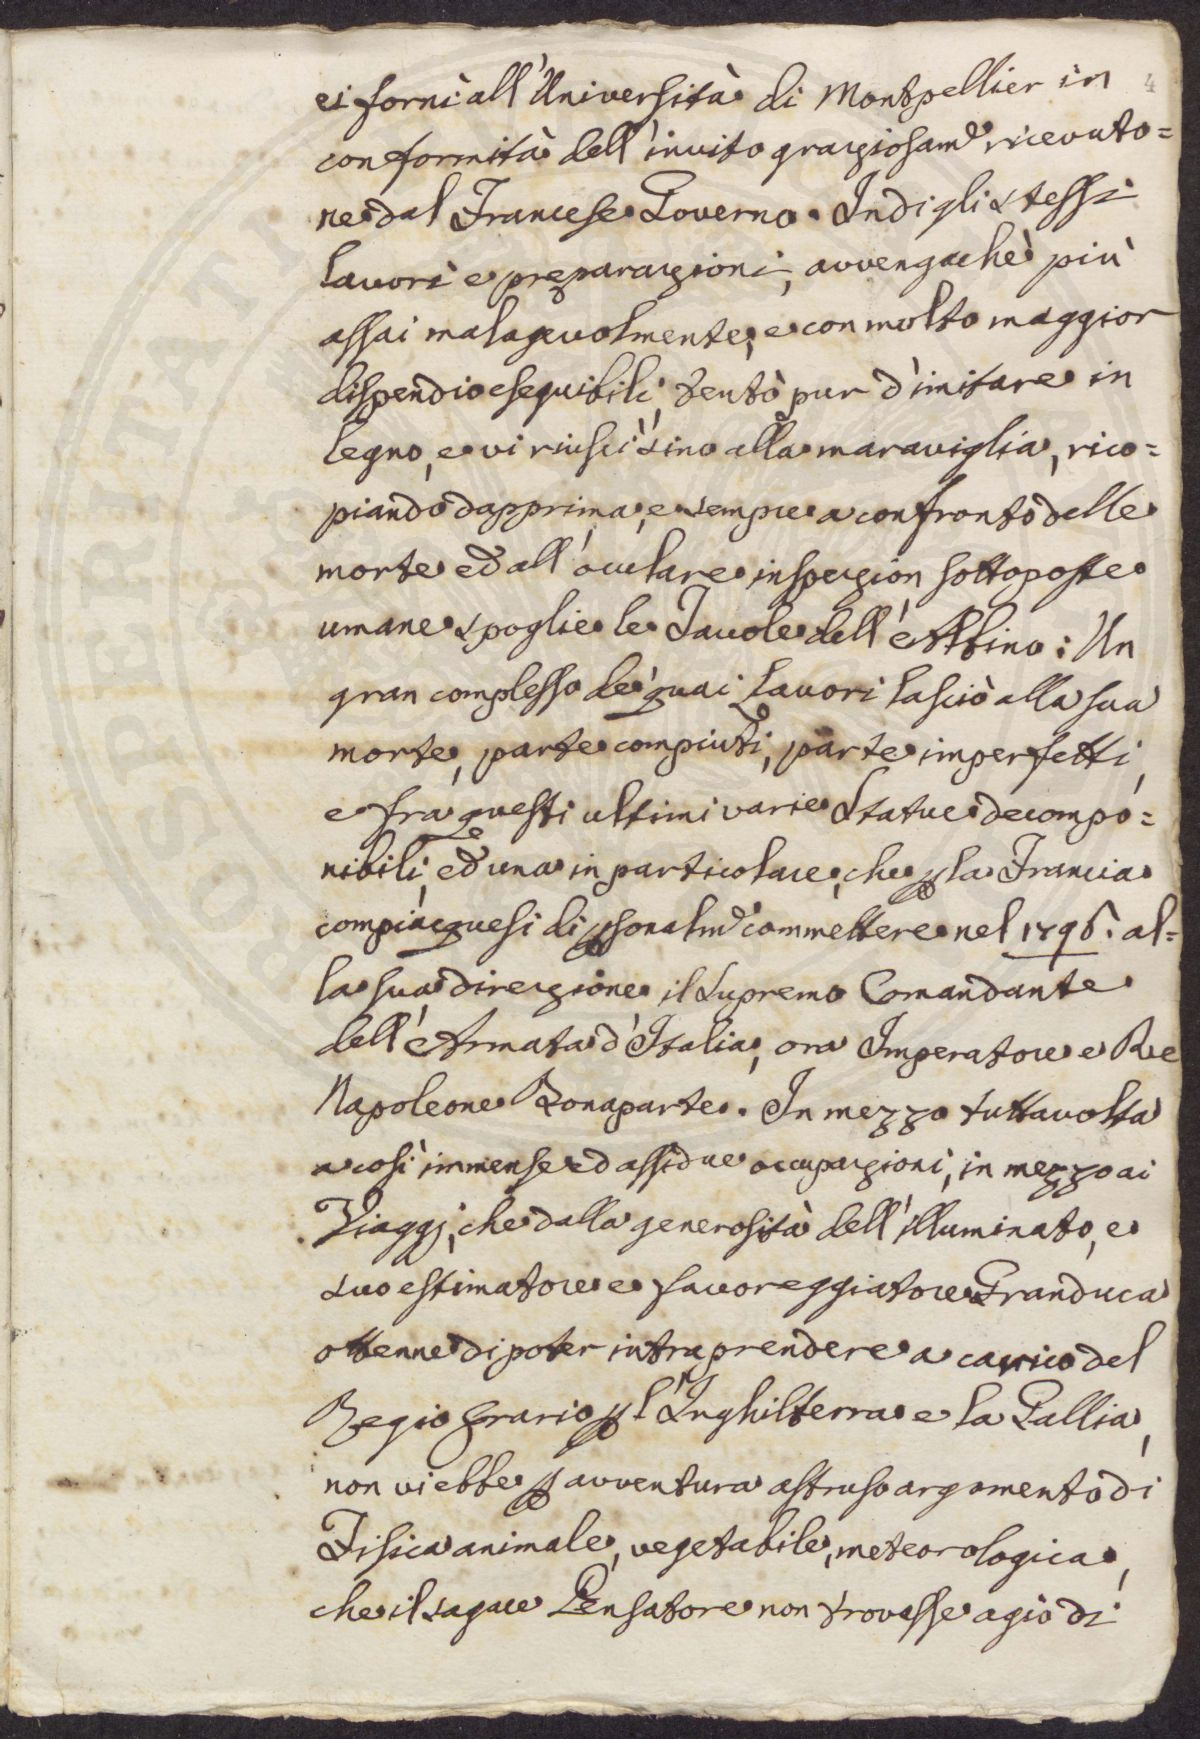 ei fornì all'Università di Montpellier in
conformità dell'invito graziosam.e ricevuto=
ne dal Francese Governo. Indi gli stessi
lavori e preparazioni, avvengachè più
assai malagevolmente, e con molto maggior
dispendio eseguibili, tentò pur d'imitare in
legno, e vi riuscì sino alla maraviglia, rico=
piando dapprima, e sempre a confronto delle
morte ed all'oculare inspezion sottoposte
umane spoglie le Tavole dell'Albino: Un
gran complesso de' quai Lavori lasciò alla sua
morte, parte compiuti, parte imperfetti,
e fra questi ultimi varie Statue decompo=
nibili, ed una in particolare, che p la Francia
compiacquesi di psonalm.e commettere nel 1796. al=
la sua direzione il Supremo Comandante
dell'Armata d'Italia, ora Imperatore e Re
Napoleone Bonaparte. In mezzo tuttavolta
a così immense ed assidue occupazioni, in mezzo ai
Viaggj, che dalla generosità dell'illuminato, e
suo estimatore e favoreggiatore Granduca
ottenne di poter intraprendere a carico del
Regio Erario p l'Inghilterra e la Gallia,
non vi ebbe p avventura astruso argomento di
Fisica animale, vegetabile, meteorologica,
che il sagace Pensatore non trovasse agio di
4